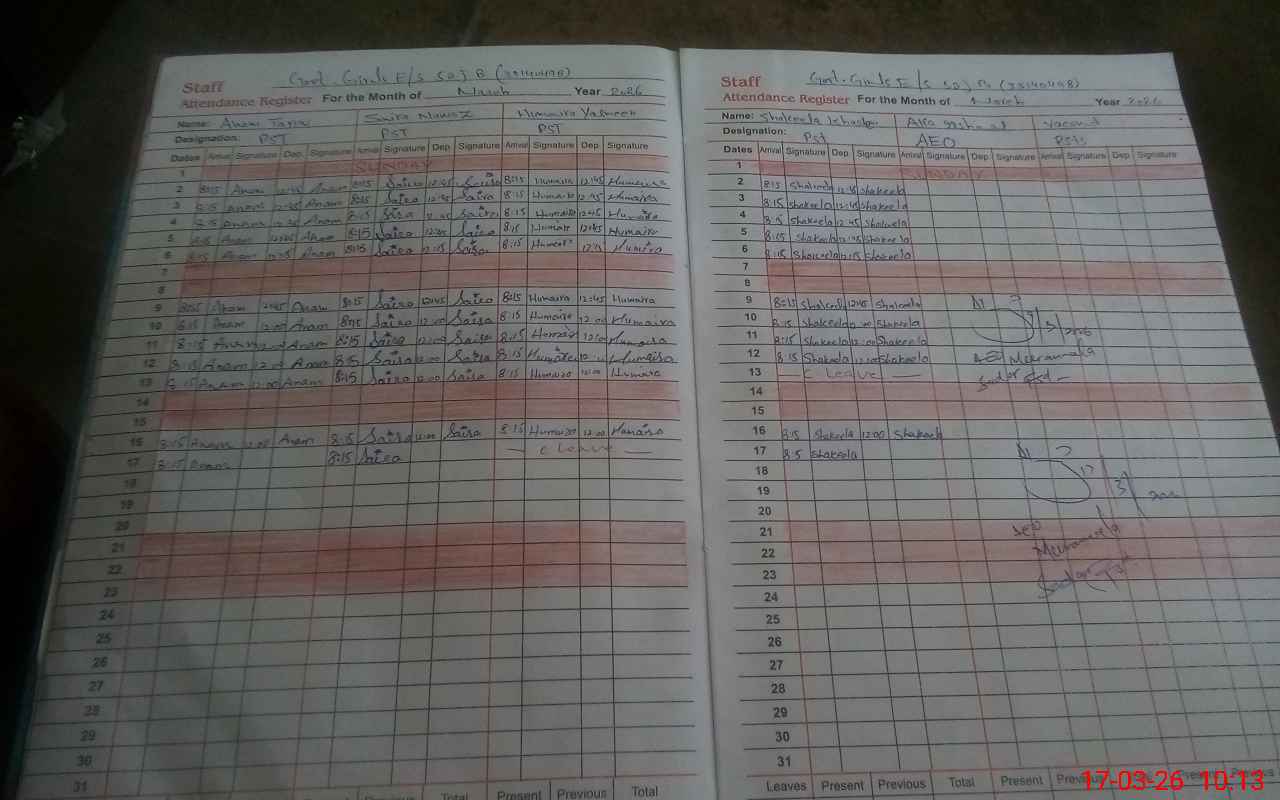 Staff Govt. Girls E/S 50 J B (38140498)
Attendance Register For the Month of March Year 2026
Name: Anam Saira Nawaz Humaira Yasmeen
Designation: PST PST PST
Dates Arrival Signature Dep. Signature Arrival Signature Dep Signature Arrival Signature Dep Signature
1 SUNDAY
2 8:15 Anam 12:45 Anam 8:15 Saira 12:45 Saira 8:15 Humaira 12:45 Humaira
3 8:15 Anam 12:45 Anam 8:15 Saira 12:45 Saira 8:15 Humaira 12:45 Humaira
4 8:15 Anam 12:45 Anam 8:15 Saira 12:45 Saira 8:15 Humaira 12:45 Humaira
5 8:15 Anam 12:45 Anam 8:15 Saira 12:45 Saira 8:15 Humaira 12:45 Humaira
6 8:15 Anam 12:15 Anam 8:15 Saira 12:15 Saira 8:15 Humaira 12:15 Humaira
7
8
9 8:15 Anam 12:45 Anam 8:15 Saira 12:45 Saira 8:15 Humaira 12:45 Humaira
10 8:15 Anam 12:00 Anam 8:15 Saira 12:00 Saira 8:15 Humaira 12:00 Humaira
11 8:15 Anam 12:00 Anam 8:15 Saira 12:00 Saira 8:15 Humaira 12:00 Humaira
12 8:15 Anam 12:00 Anam 8:15 Saira 12:00 Saira 8:15 Humaira Humaira
13 8:15 Anam 12:00 Anam 8:15 Saira 12:00 Saira 8:15 Humaira 12:00 Humaira
14
15
16 8:15 Anam 12:00 Anam 8:15 Saira 12:00 Saira 8:15 Humaira 12:00 Humaira
17 8:15 Anam 8:15 Saira — C Leave —
18
19
20
21
22
23
24
25
26
27
28
29
30
31
Present Previous Total Present Previous Total
Staff Govt. Girls E/S 50 J B (38140498)
Attendance Register For the Month of March Year 2026
Name: Shakeela vacant
Designation: Pst AEO
Dates Arrival Signature Dep. Signature Arrival Signature Dep Signature Arrival Signature Dep Signature
1 SUNDAY
2 8:15 Shakeela 12:45 Shakeela
3 8:15 Shakeela 12:45 Shakeela
4 8:15 Shakeela 12:45 Shakeela
5 8:15 Shakeela 12:45 Shakeela
6 8:15 Shakeela 12:15 Shakeela
7
8
9 8:15 Shakeela 12:45 Shakeela
10 8:15 Shakeela 12:00 Shakeela
11 8:15 Shakeela 12:00 Shakeela
12 8:15 Shakeela 12:00 Shakeela AEO
13 — C Leave —
14
15
16 8:15 Shakeela 12:00 Shakeela
17 8:15 Shakeela
18
19
20
21 AEO
22
23
24
25
26
27
28
29
30
31
Leaves Present Previous Total Present Previous Total Present Previous
17-03-26 10:13